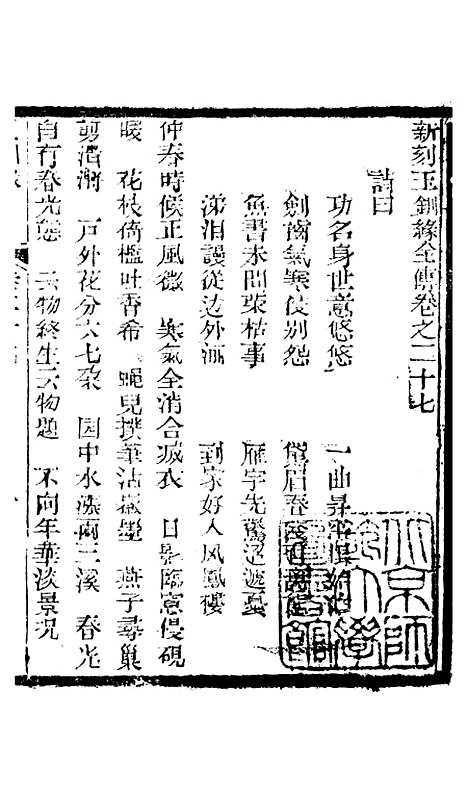 新刻玉釧緣全傳卷之二十七
詩曰
功名身世意悠悠 一曲昇平
劍南氣寒侵別怨 眉春
魚書未問榮枯事 雁字先驚迢遞憂
涕泪謾從边外洒 到家好入风鳳樓
仲春時候正風微 寒氣全消合减衣 日影臨窓侵硯
暖 花枝倚檻吐香希 蝇兒撲筆沾殘墨 燕子尋巢
剪 户外花分六七朶 园中水漲兩三溪 春光
自有春光態 云物終生云物題 不向年華淡景况
京師大學